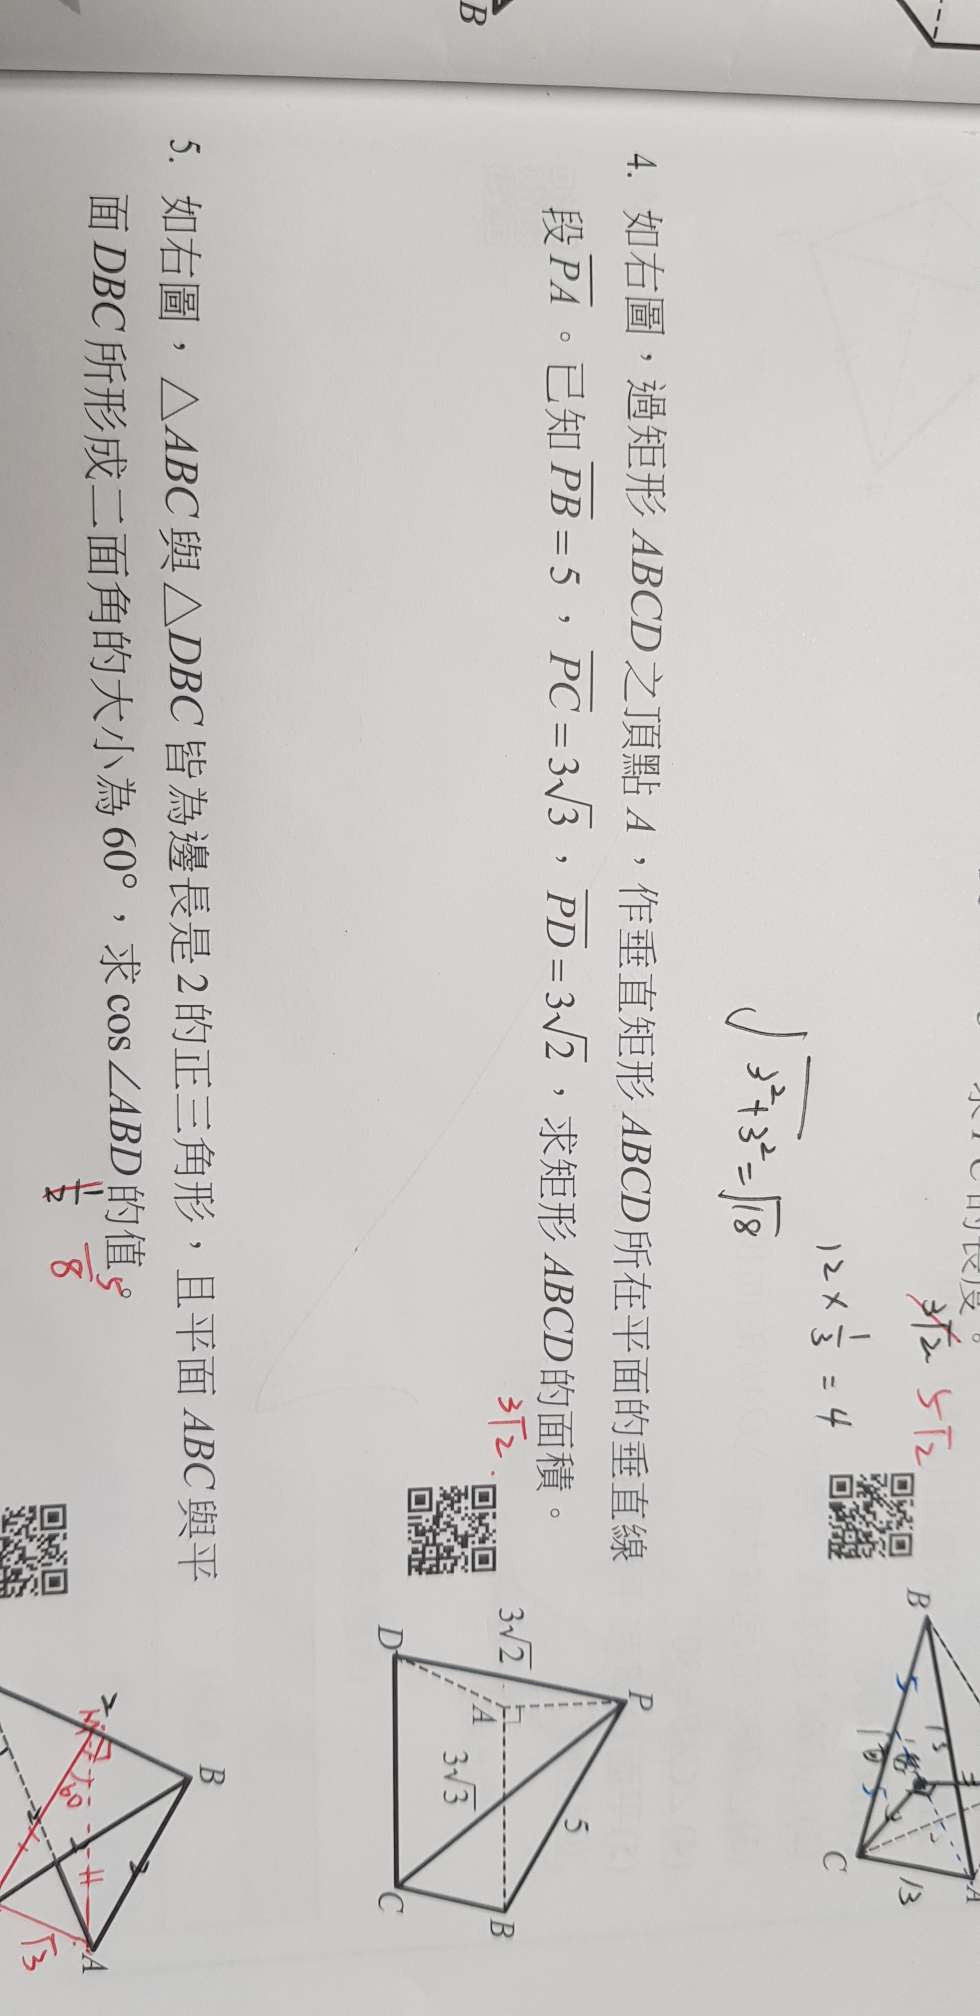 B
的長度。
3√2 5√2
12 × 1/3 = 4
√3²+3² = √18
B
A
C
13
13
5
5
4. 如右圖，過矩形 ABCD 之頂點 A，作垂直矩形 ABCD 所在平面的垂直線
段 PA。已知 PB = 5，PC = 3√3，PD = 3√2，求矩形 ABCD 的面積。
3√2
P
3√2
5
A
3√3
D
B
C
5. 如右圖，△ABC 與 △DBC 皆為邊長是 2 的正三角形，且平面 ABC 與平
面 DBC 所形成二面角的大小為 60°，求 cos∠ABD 的值。
1/2 5/8
B
2
M
60
H
2
A
√3